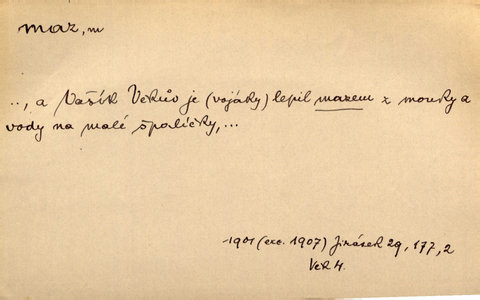 maz, m
..., a Vašík Věkův je (vojáky) lepil mazem z mouky a
vody na malé špalíčky,...
1901 (exc. 1907) Jirásek 29, 177, 2
Věk 4.